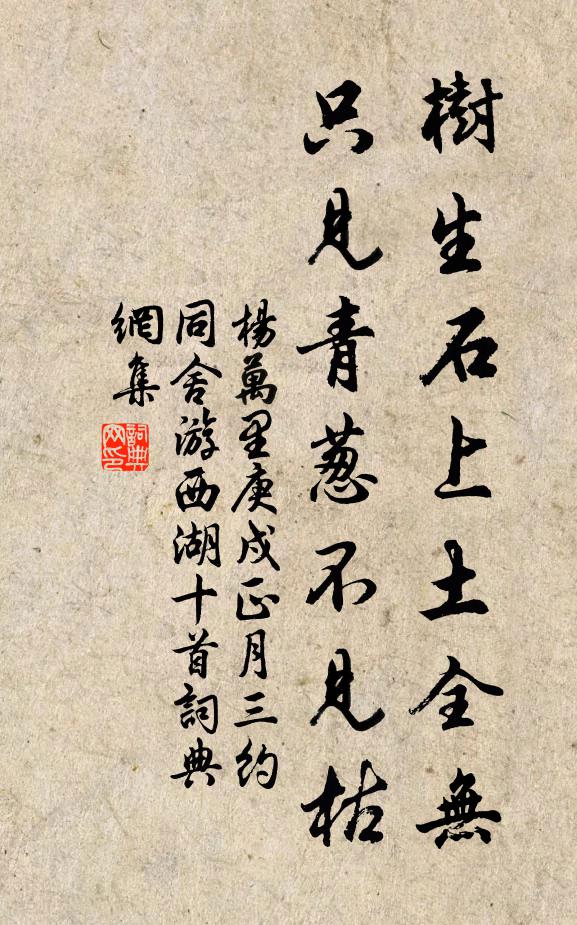 樹生石上土全無
只見青葱不見枯
楊萬里庚戌正月三約
同舍游西湖十首詞典
網集
詞典
网印